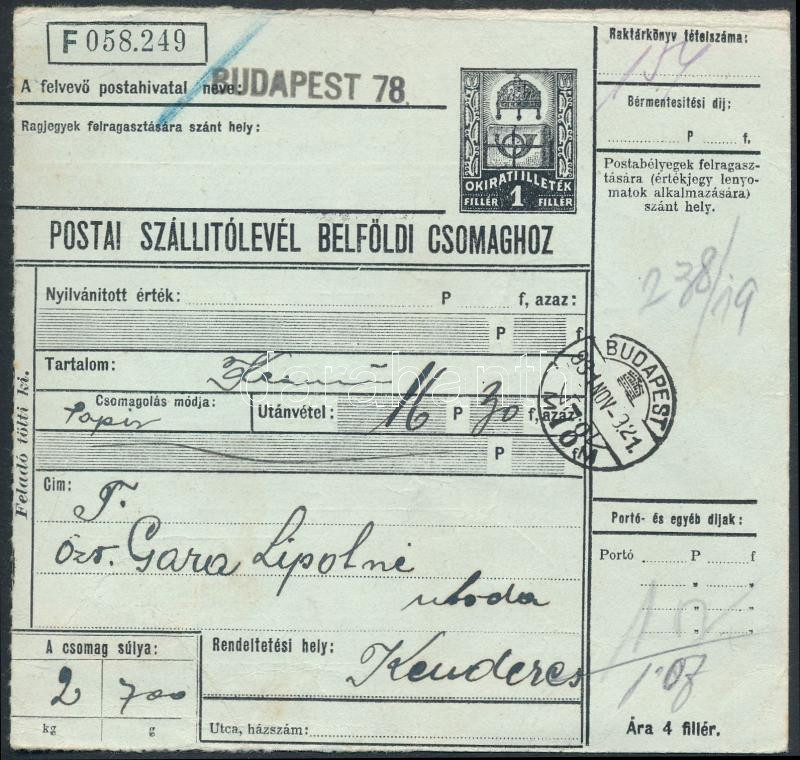 F 058.249
A felvevő postahivatal neve: BUDAPEST 78.
Ragjegyek felragasztására szánt hely:
OKIRATI ILLETÉK
FILLÉR 1 FILLÉR
POSTAI SZÁLLITÓLEVÉL BELFÖLDI CSOMAGHOZ
Feladó tölti ki.
Nyilvánitott érték: P f, azaz:
P f
Tartalom:
Csomagolás módja:
papir
Utánvétel: 16 P 30 f, azaz
P f
Cim: T.
özv. Gara Lipótné
utoda
A csomag súlya:
2 700
kg g
Rendeltetési hely: Kenderes
Utca, házszám:
Raktárkönyv tételszáma:
154
Bérmentesitési dij:
P f,
Postabélyegek felragasz-
tására (értékjegy lenyo-
matok alkalmazására)
szánt hely.
238/19
BUDAPEST
931 NOV-3.21.
Portó- és egyéb dijak:
Portó P f
" "
" "
" "
1.08
Ára 4 fillér.
darabanth